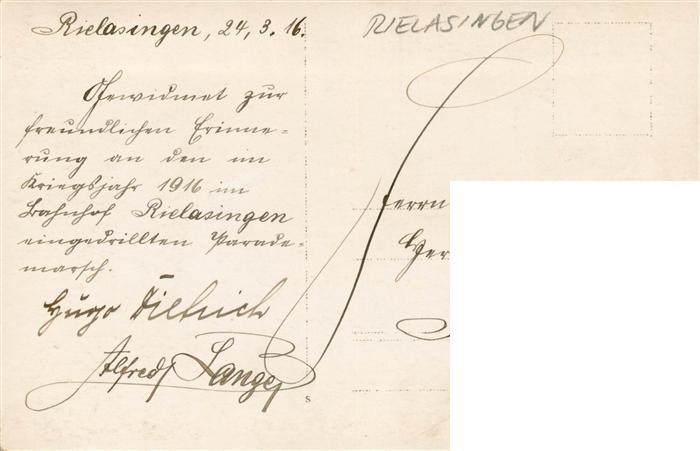 Rielasingen, 24, 3. 16.
RIELASINGEN
Gewidmet zur
freundlichen Erinne-
rung an den im
Kriegsjahr 1916 im
Bahnhof Rielasingen
eingedrillten Parade-
marsch.
Hugo Dietrich
Alfred Lange
Herrn
Her
s